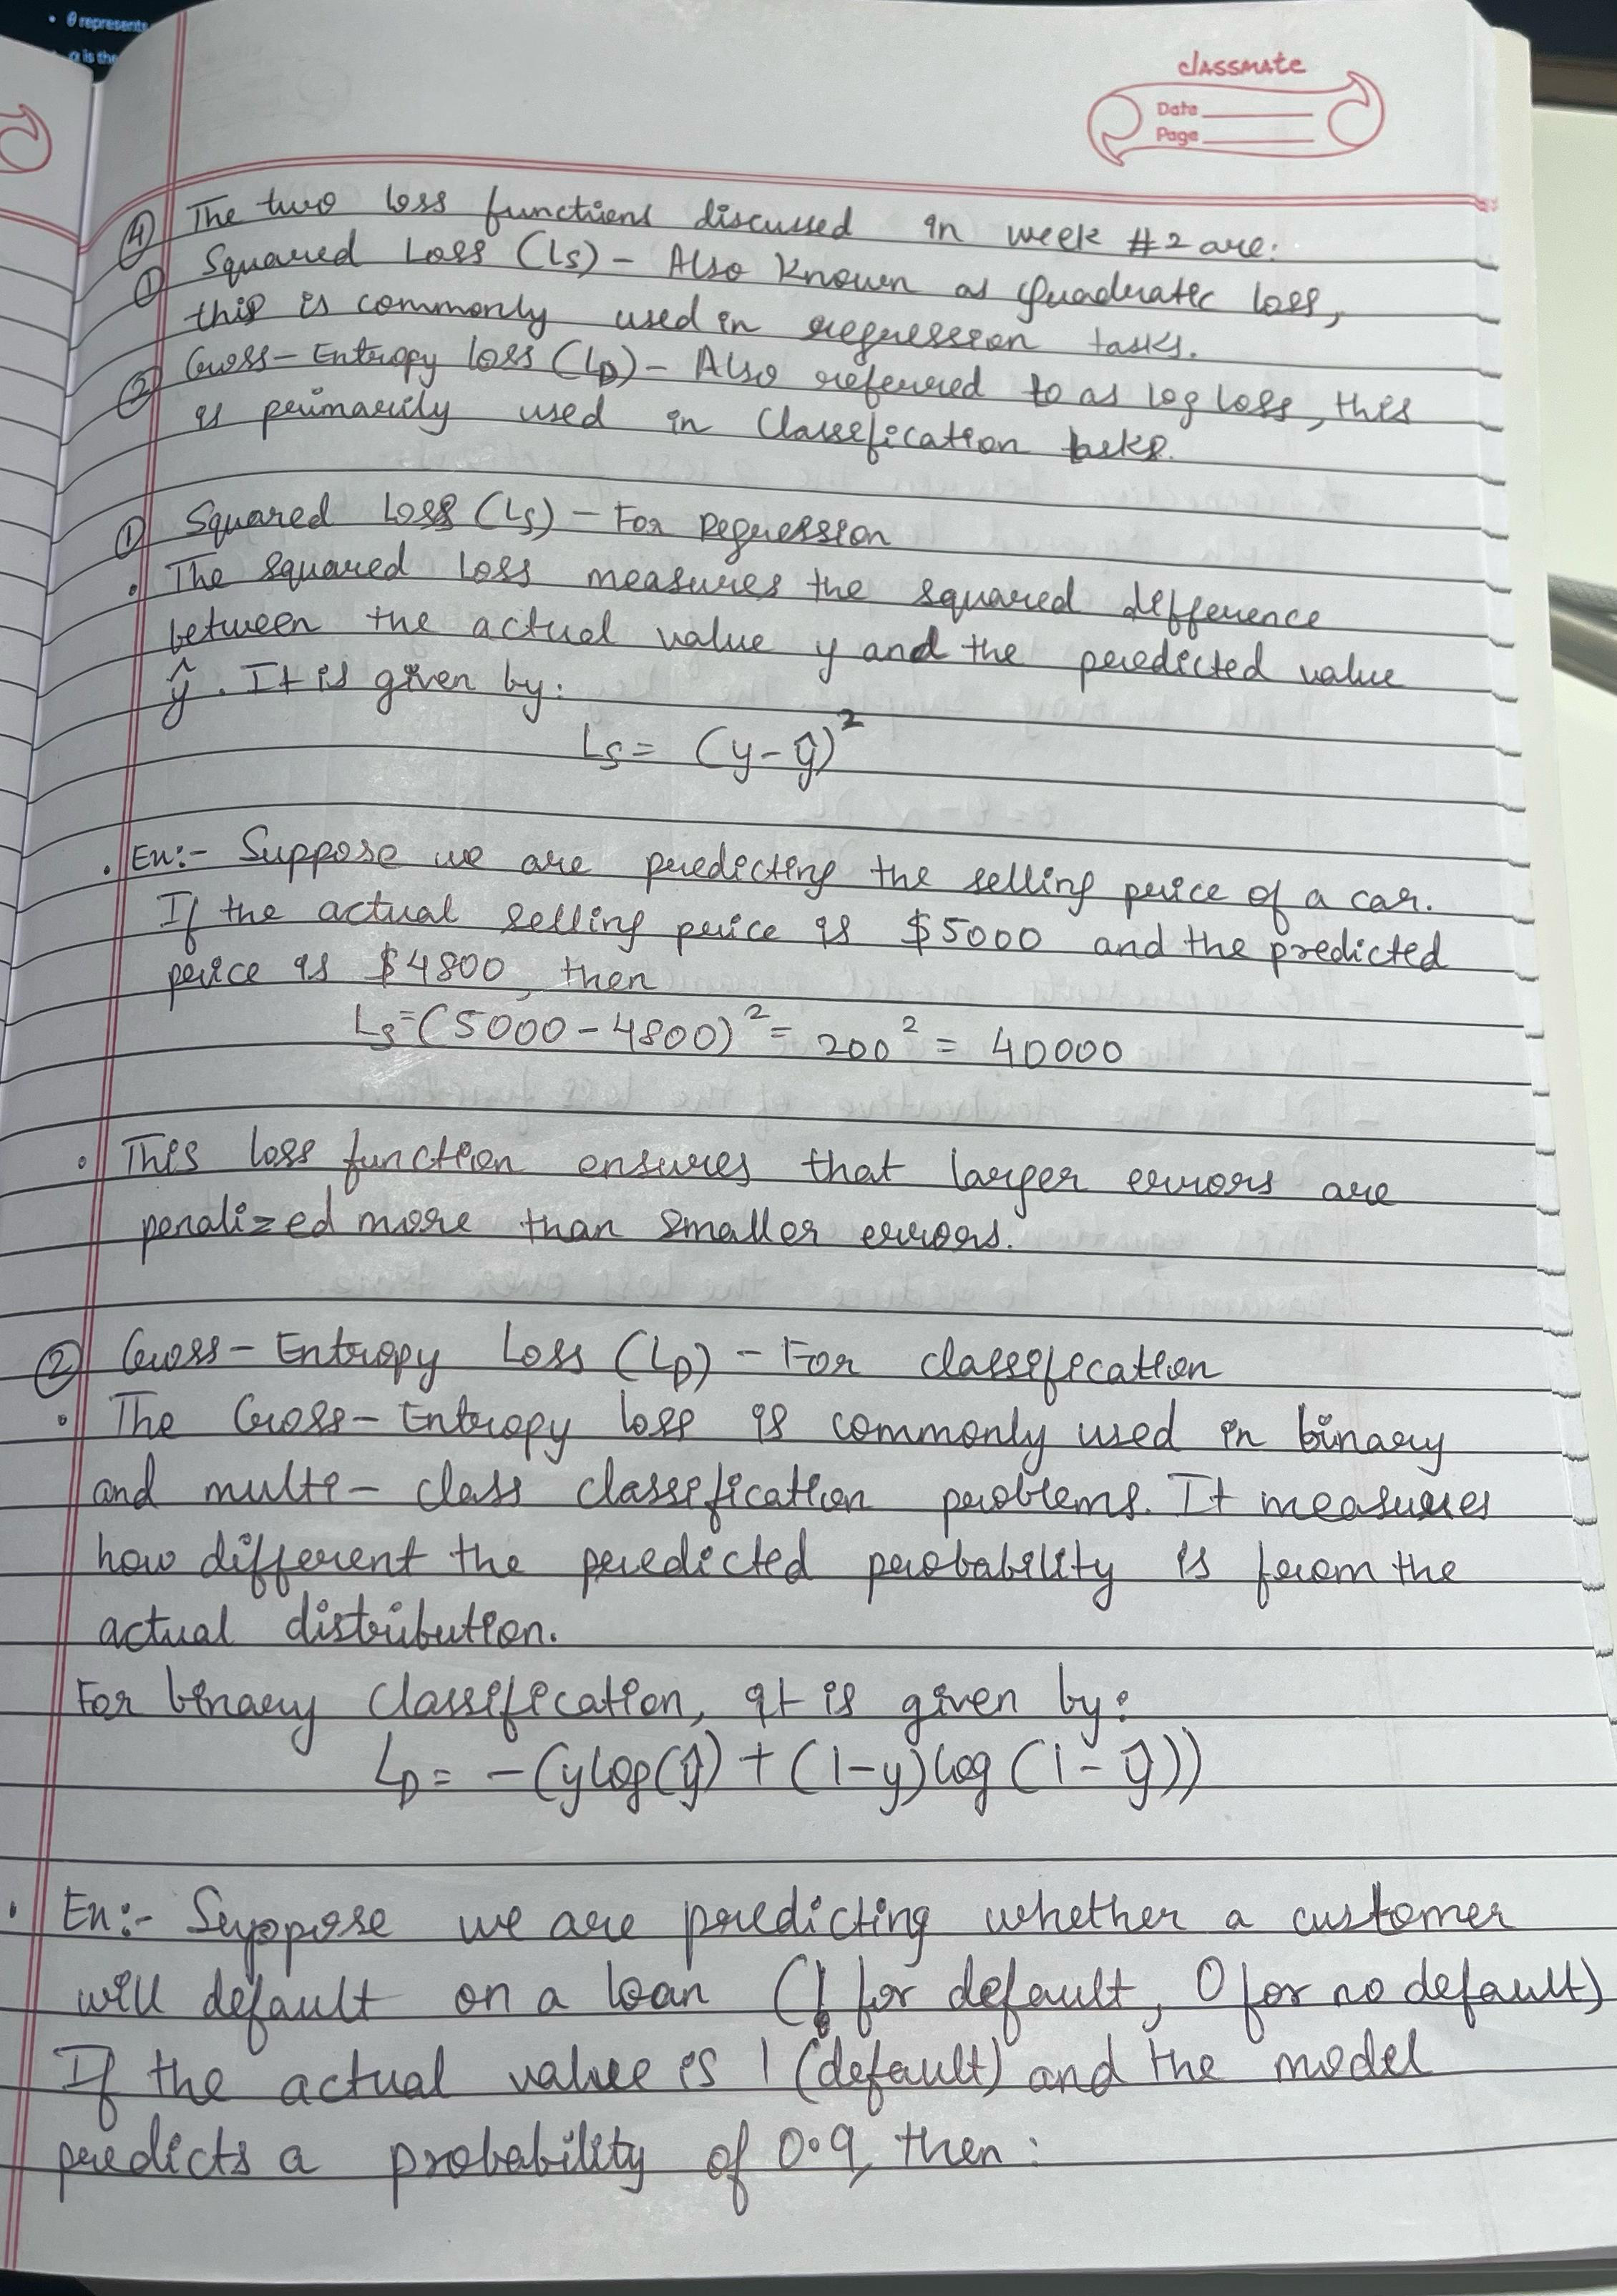 • θ represents
α is the
classmate
Date
Page
④ The two loss functions discussed in week #2 are:
① Squared Loss (LS) – Also known as quadratic loss,
this is commonly used in regression tasks.
② Cross-Entropy loss (LD) – Also referred to as log loss, this
is primarily used in classification tasks.
① Squared Loss (LS) – For Regression
• The squared loss measures the squared difference
between the actual value y and the predicted value
ŷ. It is given by:
LS = (y-ŷ)²
• Ex:- Suppose we are predicting the selling price of a car.
If the actual selling price is $5000 and the predicted
price is $4800, then
LS=(5000-4800)² = 200² = 40000
• This loss function ensures that larger errors are
penalized more than smaller errors.
② Cross-Entropy Loss (LD) – For classification
• The Cross-Entropy loss is commonly used in binary
and multi-class classification problems. It measures
how different the predicted probability is from the
actual distribution.
For binary classification, it is given by:
LD = -(ylog(ŷ) + (1-y)log(1-ŷ))
• Ex:- Suppose we are predicting whether a customer
will default on a loan (1 for default, 0 for no default)
If the actual value is 1 (default) and the model
predicts a probability of 0.9, then: